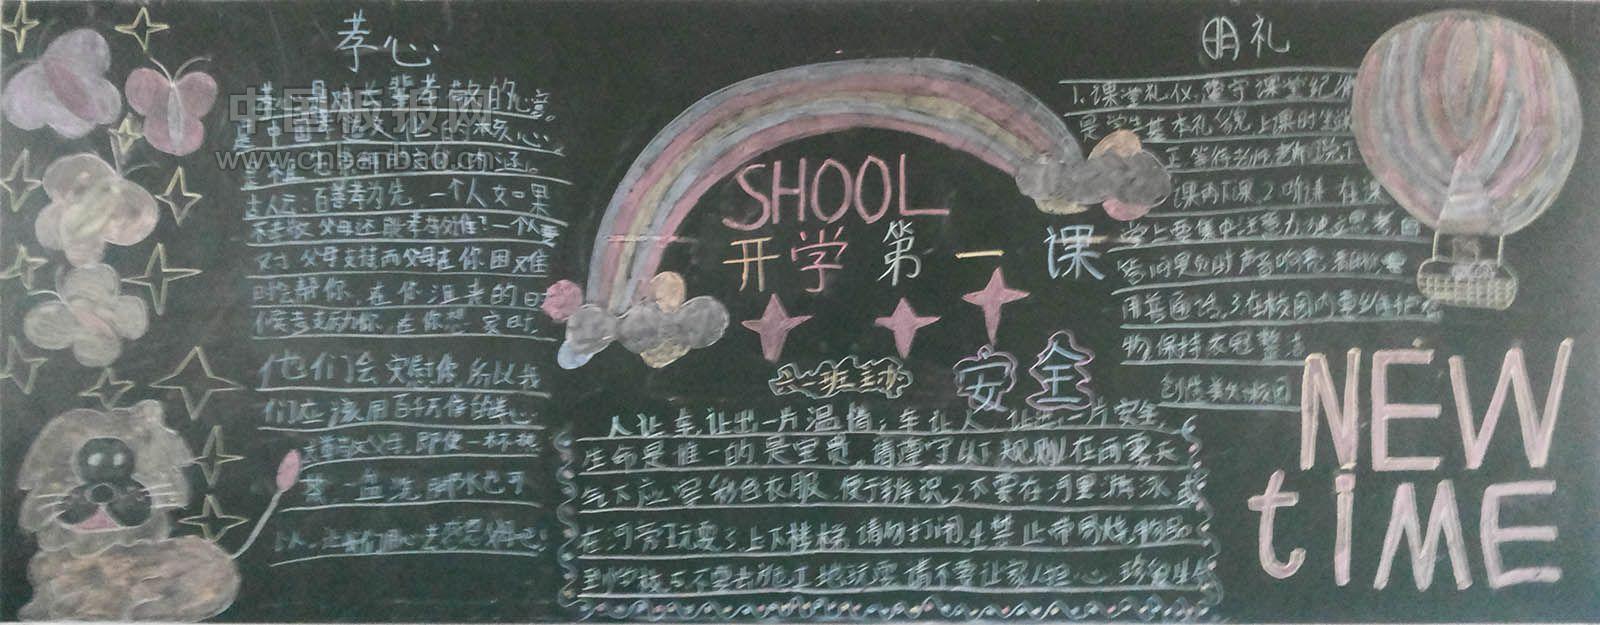 孝心
孝是对长辈孝敬的心意。
是中国孝道文化的核心
古人云:百善孝为先 一个人如果
不孝敬父母还能孝敬谁?一个人要
对父母支持而父母在你困难
时会帮你,在你沮丧的时
候会支励你,在你想家时,
他们会安慰你,所以我
们应该用百千万倍的孝心
去孝敬父母,即使一杯热
茶一盆洗脚水也可
中国板报网
www.cnbanbao.cn
SHOOL
开学第一课
六一班主办
安全
人让车,让出一片温情;车让人 让出一片安全,
生命是唯一的是宝贵,请遵守以下规则在雨雾天
气下应穿彩色衣服,便于辨识2不要在河里游泳或
在河旁玩耍3上下楼梯,请勿打闹4禁止带易燃物品
到学校5不要去施工地玩耍请不要让家人担心,珍爱生命
明礼
1.课堂礼仪,遵守课堂纪律
是学生基本礼貌上课时坐
正等待老师
课再下课,2听讲 在课
堂上要集中注意力独立思考,回
答问题时声音响亮
用普通话,3在校园内要维护
物保持衣冠整洁
创造美丽校园
NEW
tiME